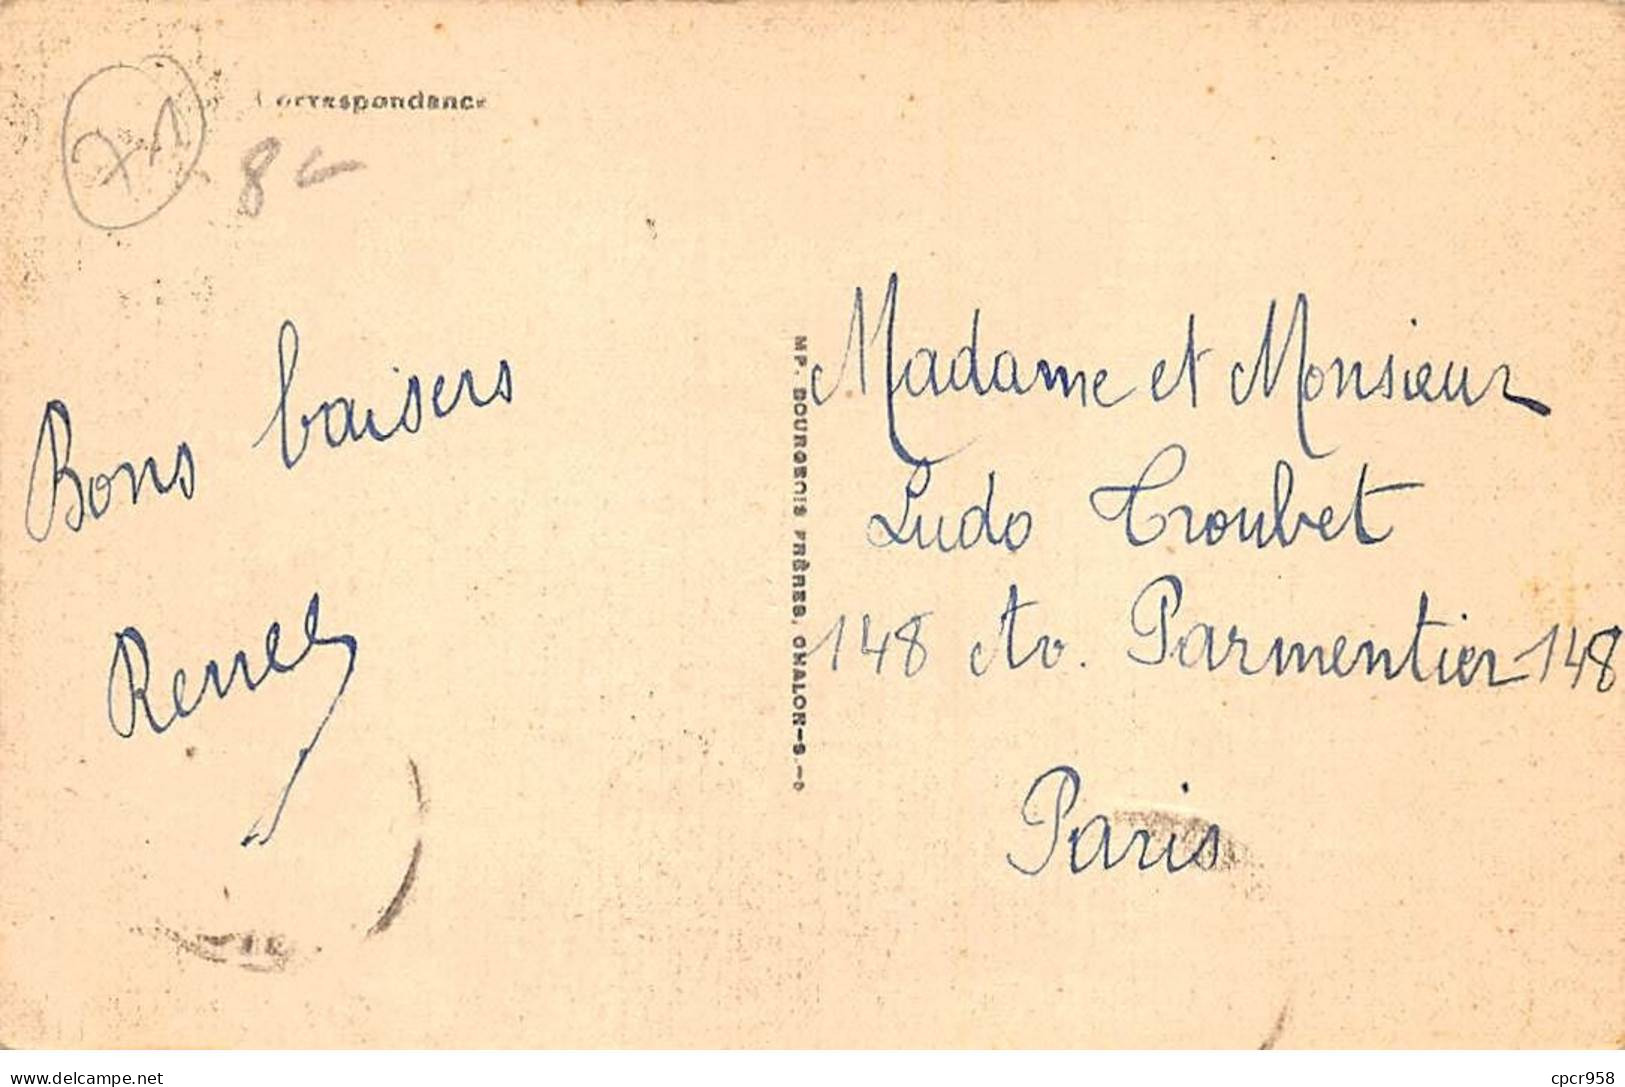 Correspondance
71
8
Bons baisers
Renee
MP. BOURGEOIS FRÈRES, CHALON-S.-S
Madame et Monsieur
Ludo Troubet
148 Av. Parmentier 148
Paris
delcampe.net
cpcr958